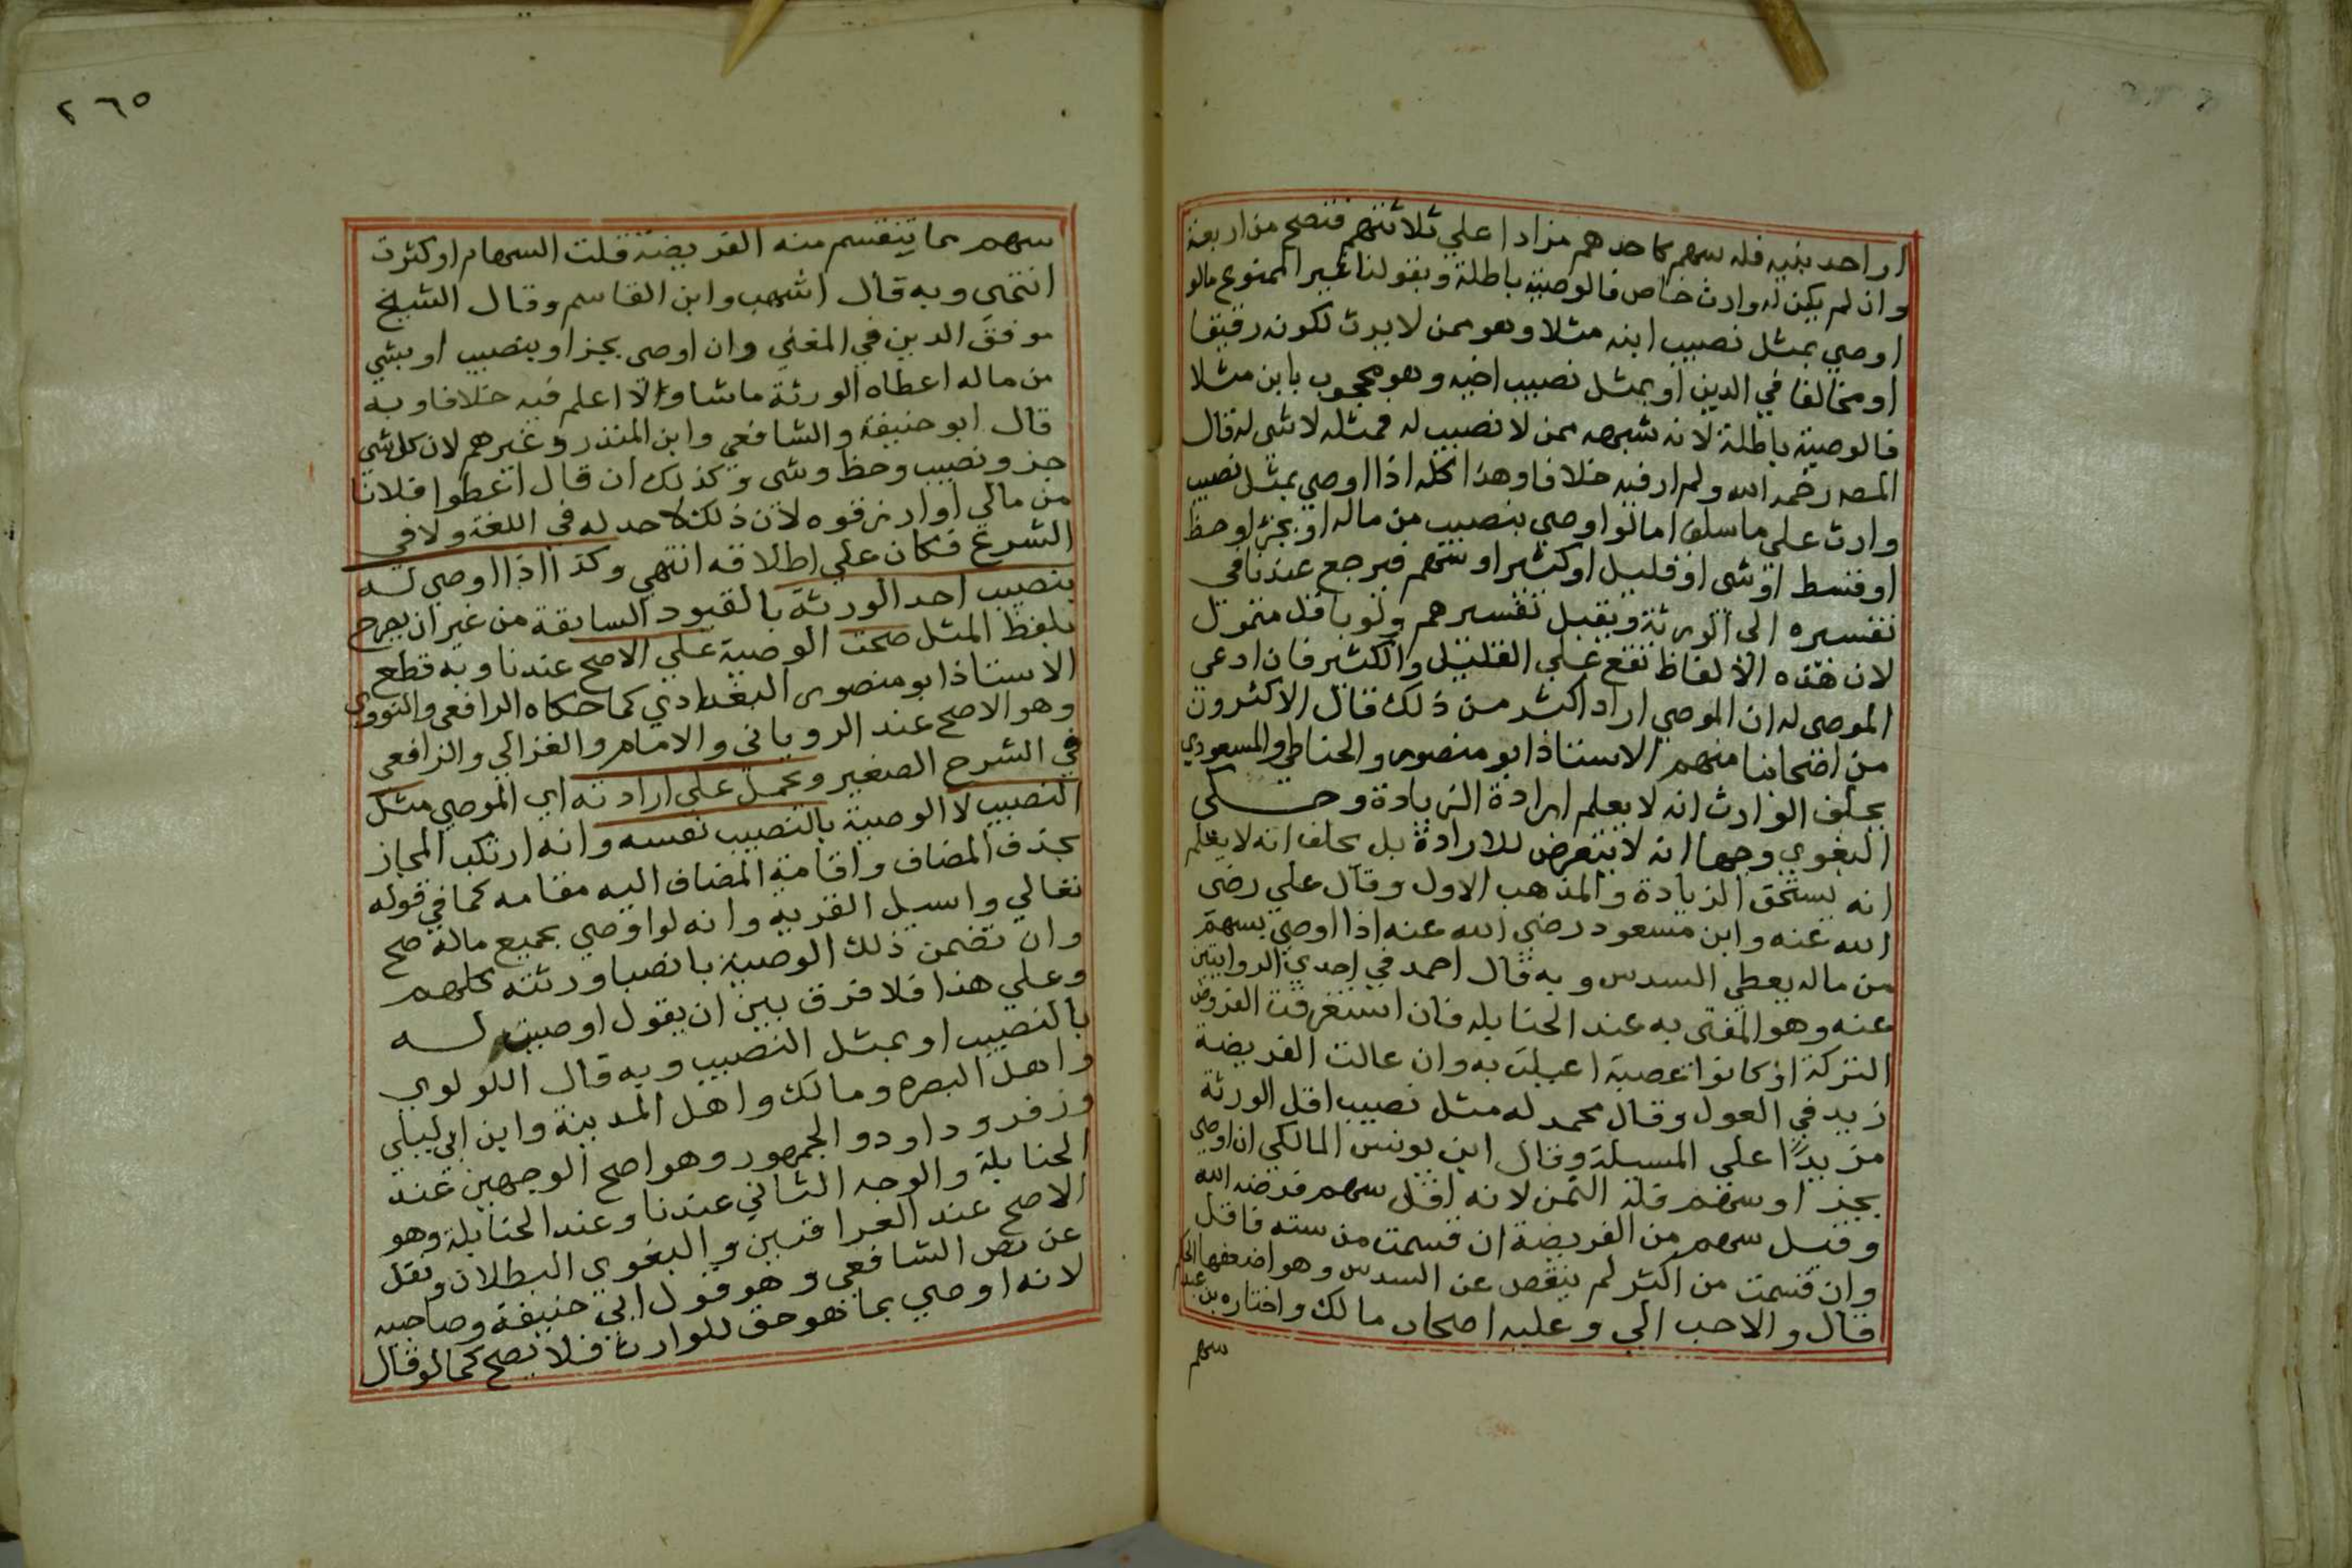 او احد بنيه فله سهم كاحدهم مزادا علي ثلاثتهم فتصح من اربعة
وان لم يكن له وارث خاص فالوصية باطلة وبقولنا غير الممنوع مالو
اوصي بمثل نصيب ابنه مثلا وهو ممن لا يرث لكونه رقيقا
او مخالفا في الدين او بمثل نصيب اخيه وهو محجوب بابن مثلا
فالوصية باطلة لانه شبهه بمن لا نصيب له فمثله لا شي له قال
المصه رحمه الله ولم ار فيه خلافا وهذا كله اذا اوصي بمثل نصيب
وارث علي ما سلف اما لو اوصي بنصيب من ماله او بجزء او حظ
او قسط او شي او قليل او كثير او سهم فيرجع عندنا في
تفسيره الى الورثة ويقبل تفسيرهم ولو باقل متمول
لان هذه الالفاظ تقع علي القليل والكثير فان ادعى
الموصى له ان الموصي اراد اكثر من ذلك قال الاكثرون
من اصحابنا منهم الاستاذ ابو منصور والحناطي والمسعودي
يحلف الوارث انه لا يعلم ارادة الزيادة وحكى
البغوي وجها انه لا يتعرض للارادة بل يحلف انه لا يعلم
انه يستحق الزيادة والمذهب الاول وقال علي رضى
الله عنه وابن مسعود رضي الله عنه اذا اوصي بسهم
من ماله يعطي السدس وبه قال احمد في احدي الروايتين
عنه وهو المفتى به عند الحنابله فان استغرقت الفروض
التركة او كانوا عصبة اعيلت به وان عالت الفريضة
زيد في العول وقال محمد له مثل نصيب اقل الورثة
مزيدًا علي المسيلة وقال ابن يونس المالكي ان اوصى
بجز او سهم فله الثمن لانه اقل سهم فرضه الله
وقيل سهم من الفريضة ان قسمت من سته فاقل
وان قسمت من اكثر لم ينقص عن السدس وهو اضعفها
قال والاحب الي وعليه اصحاب مالك واختاره بن عبد الحكم
سهم
٢٦٥
سهم مما ينقسم منه الفريضة قلت السهام او كثرت
انتهي وبه قال اشهب وابن القاسم وقال الشيخ
موفق الدين في المغني وان اوصى بجز او بنصيب او بشي
من ماله اعطاه الورثة ما شاوا لا اعلم فيه خلافا وبه
قال ابو حنيفة والشافعي وابن المنذر وغيرهم لان كل شي
جز ونصيب وحظ وشى وكذلك ان قال اعطوا فلانا
من مالي او ارزقوه لان ذلك لا حد له في اللغة ولا في
الشرع فكان علي اطلاقه انتهي وكذا اذا اوصي له
بنصيب احد الورثة بالقيود السابقة من غير ان يصرح
بلفظ المثل صحت الوصية علي الاصح عندنا وبه قطع
الاستاذ ابو منصور البغدادي كما حكاه الرافعي والنووي
وهو الاصح عند الروياني والامام والغزالي والرافعي
في الشرح الصغير وتحمل على ارادته اي الموصي مثل
النصيب لا الوصية بالنصيب نفسه وانه ارتكب المجاز
بحذف المضاف واقامة المضاف اليه مقامه كما في قوله
تعالي واسيل القريه وانه لو اوصي بجميع ماله صح
وان تضمن ذلك الوصية بانصبا ورثته كلهم
وعلي هذا فلا فرق بين ان يقول اوصيت له
بالنصيب او بمثل النصيب وبه قال اللولوي
واهل البصره ومالك واهل المدينة وابن ابي ليلي
وزفر وداود والجمهور وهو اصح الوجهين عند
الحنابلة والوجه الثاني عندنا وعند الحنابلة وهو
الاصح عند العراقيين والبغوي البطلان ونقل
عن نص الشافعي وهو قول ابي حنيفة وصاحبيه
لانه اوصي بما هو حق للوارث فلا يصح كما لو قال